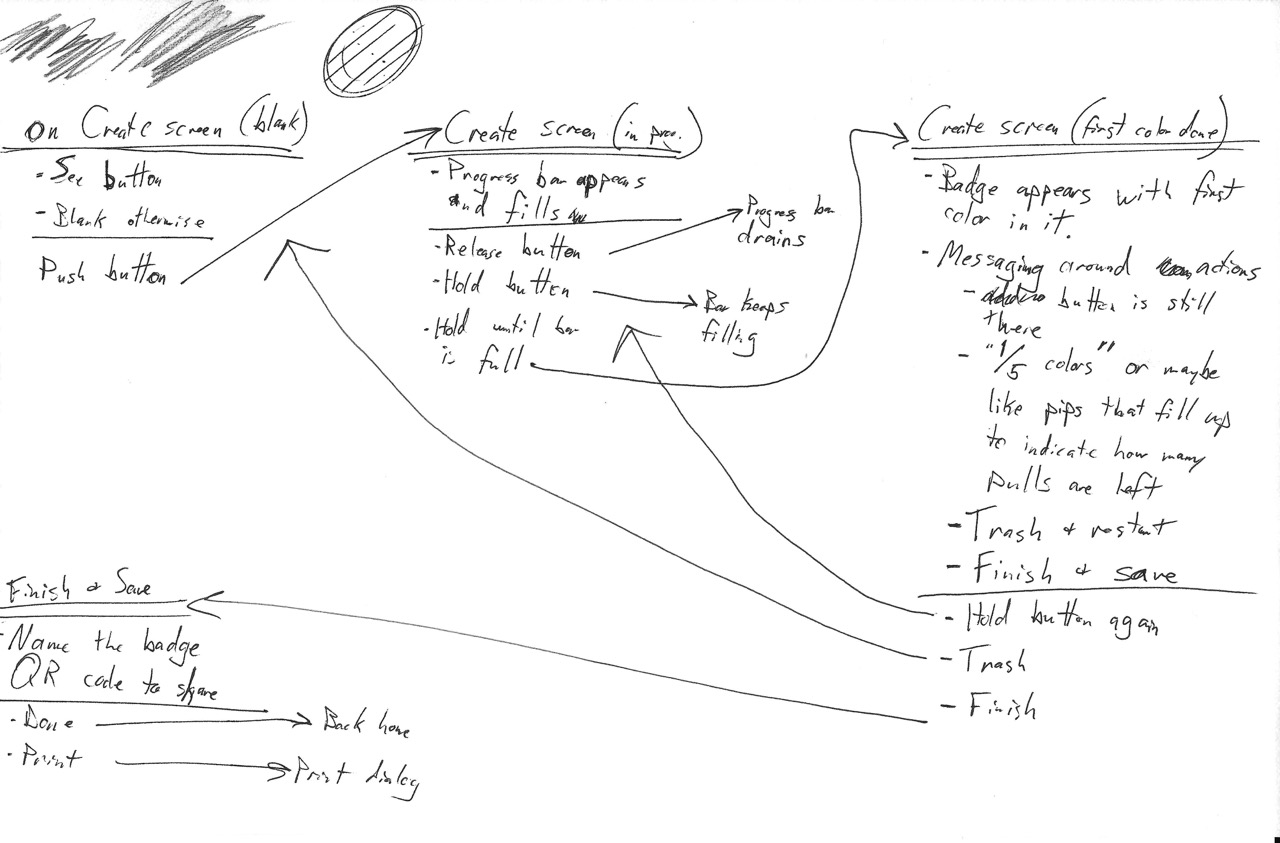 On Create screen (blank)
- See button
- Blank otherwise
Push button
Create screen (in proc.)
- Progress bar appears
and fills
- Release button
- Hold button
- Hold until bar
is full
Progress bar
drains
Bar keeps
filling
Create screen (first color done)
- Badge appears with first
color in it.
- Messaging around actions
- button is still
there
- "1/5 colors" or maybe
like pips that fill up
to indicate how many
pulls are left
- Trash & restart
- Finish & save
- Hold button again
- Trash
- Finish
Finish & Save
- Name the badge
QR code to share
- Done
Back home
- Print
Print dialog